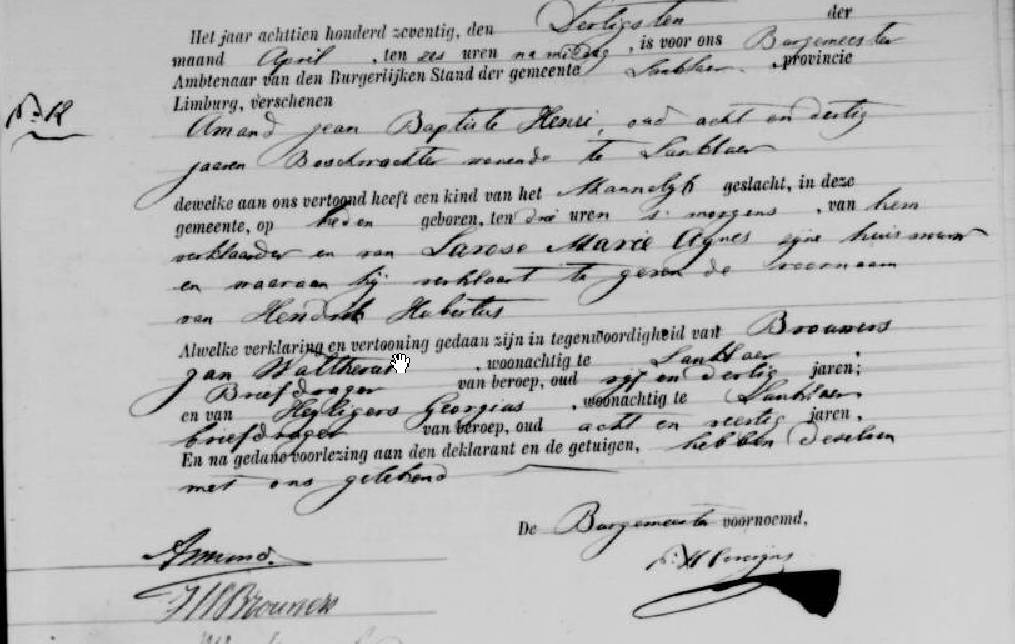 Het jaar achttien honderd zeventig, den Dertigsten der
maand April, ten zes uren namiddag, is voor ons Burgemeester
Ambtenaar van den Burgerlijken Stand der gemeente Lanklaer, provincie
Limburg, verschenen
N. 12
Amand jean Baptiste Henri, oud acht en dertig
jaaren Boschwachter wonende te Lanklaer
dewelke aan ons vertoond heeft een kind van het Mannelyk geslacht, in deze
gemeente, op heden geboren, ten drie uren s' morgens, van hem
verklaarder en van Larose Marie Agnes zijne huisvrouw
en waeraan hij verklaert te geven de voornaam
van Hendrik Hubertus
Alwelke verklaring en vertooning gedaan zijn in tegenwoordigheid van Brouwers
jan Walthera, woonachtig te Lanklaer
Briefdrager van beroep, oud vyf en dertig jaren;
en van Heyligers Georgius, woonachtig te Lanklaer
briefdrager van beroep, oud acht en veertig jaren.
En na gedane voorlezing aan den deklarant en de getuigen, hebben deselven
met ons getekend
De Burgemeester voornoemd,
Amand
JW Brouwers